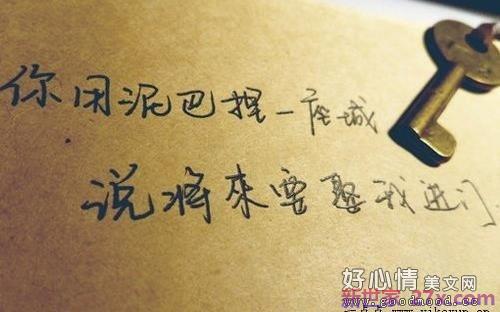 你用泥巴捏一座城
说将来要娶我进门
好心情美文网
新世家 27x.com
www.goodmood.cc